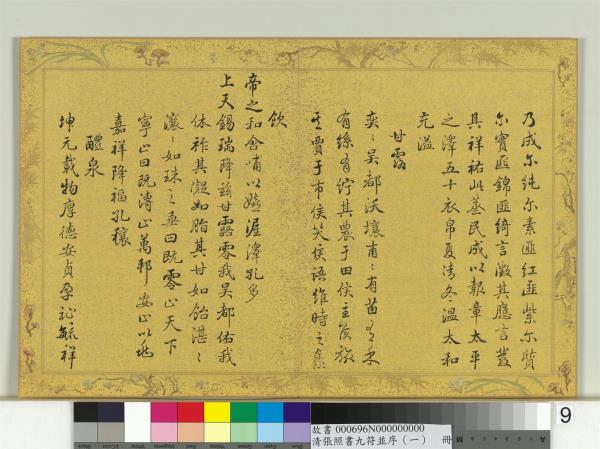 乃成尔純尔素匪紅匪紫尔質
尔實匪錦匪綺言徵其應言叢
其祥祐此蒸民成以報章太平
之澤五十衣帛夏清冬溫太和
充溢
甘露
奕〻吳都沃壤甫〻有苗有禾
有絲有紵其農于田侯主侯旅
其賈于市侯笑侯語維時之泰
飲
帝之和含哺以嬉渥澤孔多
上天錫瑞降茲甘露零我吳都佑我
休祚其凝如脂其甘如飴湛〻
瀼〻如珠之垂曰既零止天下
寧止曰既漙止萬邦安止以兆
嘉祥降福孔穰
醴泉
坤元載物厚德安貞孕祉毓祥
故書 000696N000000000
清張照書九符並序（一） 冊
9